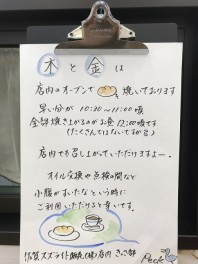 木と金は
店内のオーブンで 焼いております
早い分が 10:30~11:00頃
全部焼き上がるのがお昼 12:00頃です
(たくさんではないですが)
店内でも召し上がっていただけますよー。
オイル交換や点検の間など
小腹がすいたなという時に
ご利用いただけると幸いです。
スズライト販売(株)店内 きっさ部